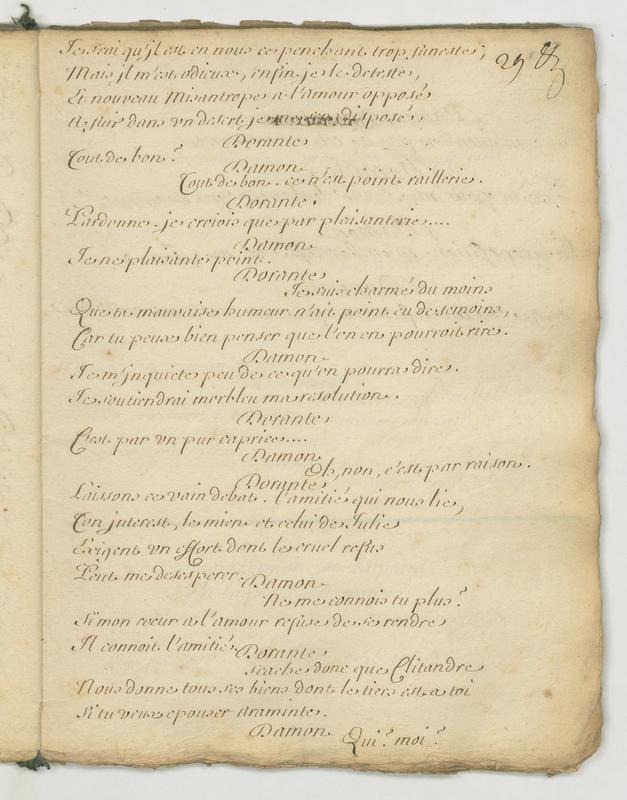 Je scai qu'jl est en nous ce penchant trop funeste;
29
Mais jl m'est odieux, enfin je le deteste,
Et nouveau Misantrope a l'amour opposé
A fuir dans un desert je disposé.
Dorante
Tout de bon?
Damon
Tout de bon. ce n'est point raillerie.
Dorante.
Pardonne. je croiois que par plaisanterie....
Damon
Je ne plaisante point.
Dorante
Je suis charmé du moins
Que ta mauvaise humeur n'ait point eu de temoins,
Car tu peux bien penser que l'on en pourroit rire.
Damon
Je m'jnquiete peu de ce qu'on pourra dire.
Je soutiendrai morbleu ma resolution.
Dorante
C'est par un pur caprice....
Damon
Oh, non, c'est par raison.
Dorante
Laissons ce vain debat. l'amitié qui nous lie,
Ton jnterest, le mien et celui de Julie
Exigent un effort dont le cruel refus
Peut me desesperer.
Damon
Ne me connois tu plus?
Si mon coeur a l'amour refuse de se rendre
Jl connoit l'amitié
Dorante
scache donc que Clitandre
Nous donne tous ses biens dont le tiers est a toi
Si tu veux epouser Araminte.
Damon
Qui? moi?